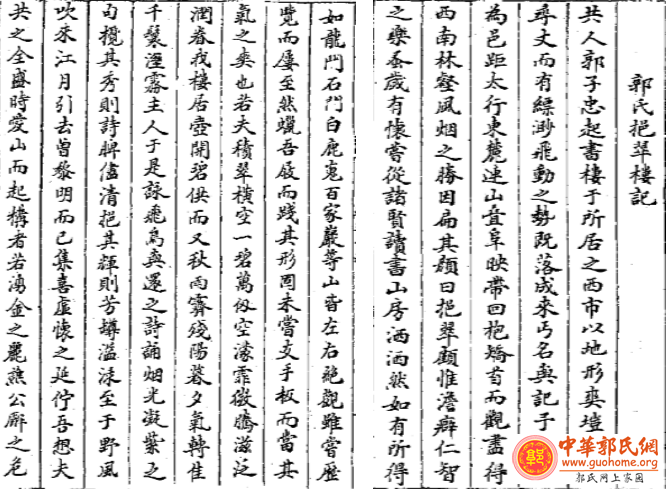 郭氏挹翠樓記
共人郭子忠起書樓于所居之西市以地形爽塏
尋丈而有縹渺飛動之勢既落成來丐名與記于
為邑距太行東麓連山疊阜映帶回抱矯首而觀盡得
西南林壑風烟之勝因扁其顏曰挹翠顧惟澹癖仁智
之樂蚤歲有懷嘗從諸賢讀書山房洒洒然如有所得
如龍門石門白鹿嵬百家巖等山皆左右絕觀雖嘗歷
覽而屢至然蠟吾屐而踐其形固未嘗支手板而當其
氣之爽也若夫積翠橫空一碧萬仭空濛霏微騰滋泛
潤眷我樓居壺開碧供而又秋雨霽殘陽暮夕氣轉佳
千鬟溼霧主人于是詠飛鳥與還之詩誦烟光凝紫之
句攬其秀則詩脾儘清挹其輝則芳罇溢淥至于野風
吹来江月引去曾黎明而已集喜虛懷之延佇吾想夫
共之全盛時愛山而起構者若鴻金之麗譙公廨之危
中華郭氏網
www.guohome.org
郭氏网上家園